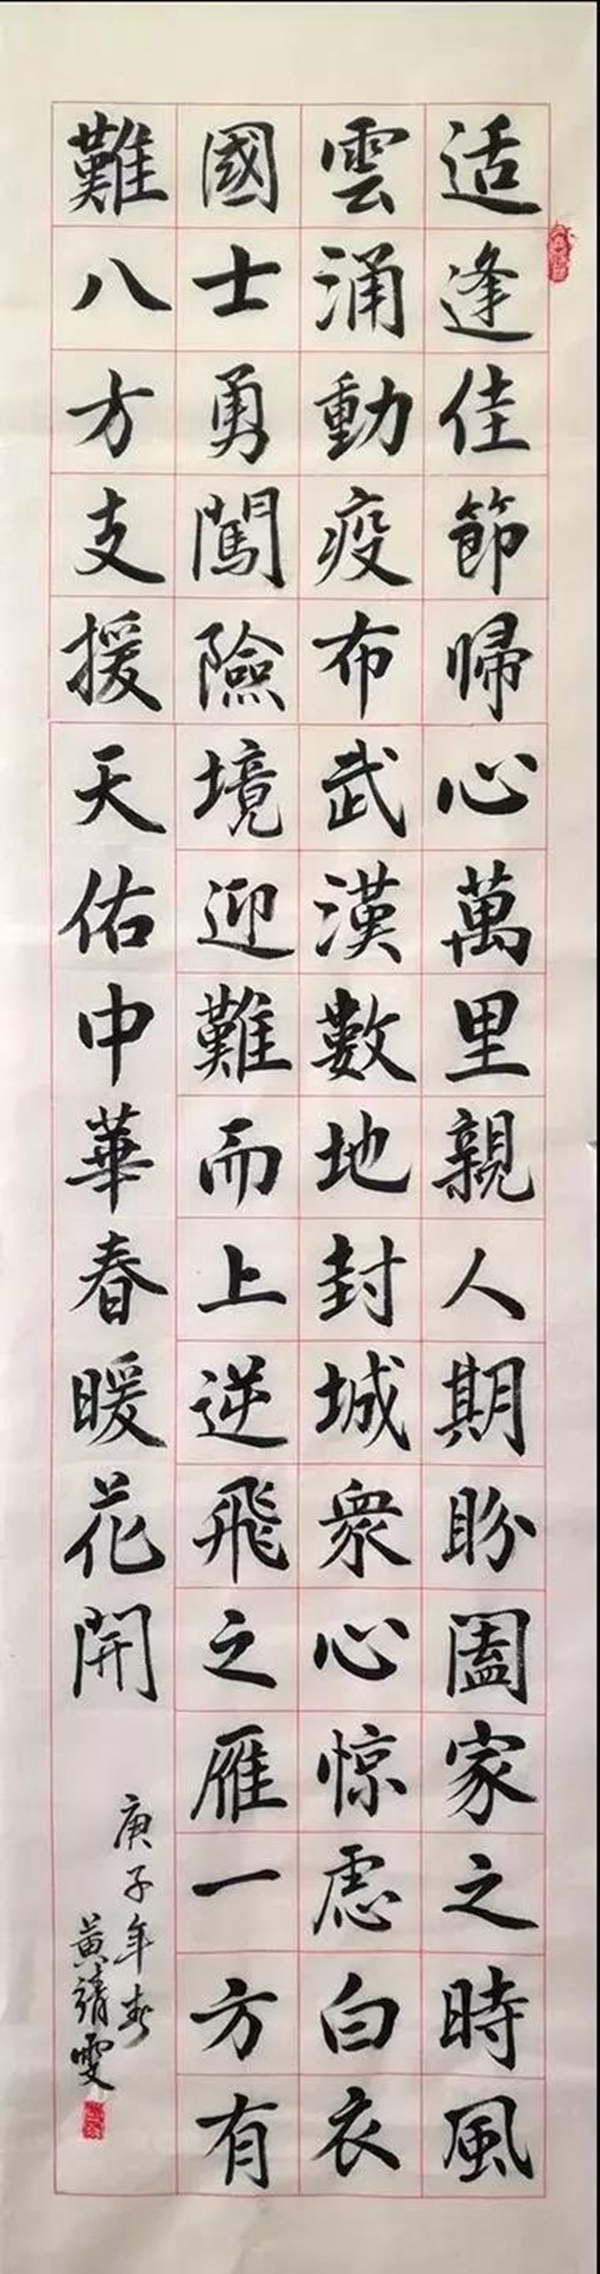 适逢佳節歸心萬里親人期盼闔家之時風
雲涌動疫布武漢數地封城衆心惊慮白衣
國士勇闖險境迎難而上逆飛之雁一方有
難八方支援天佑中華春暖花開
庚子年春
黄靖雯